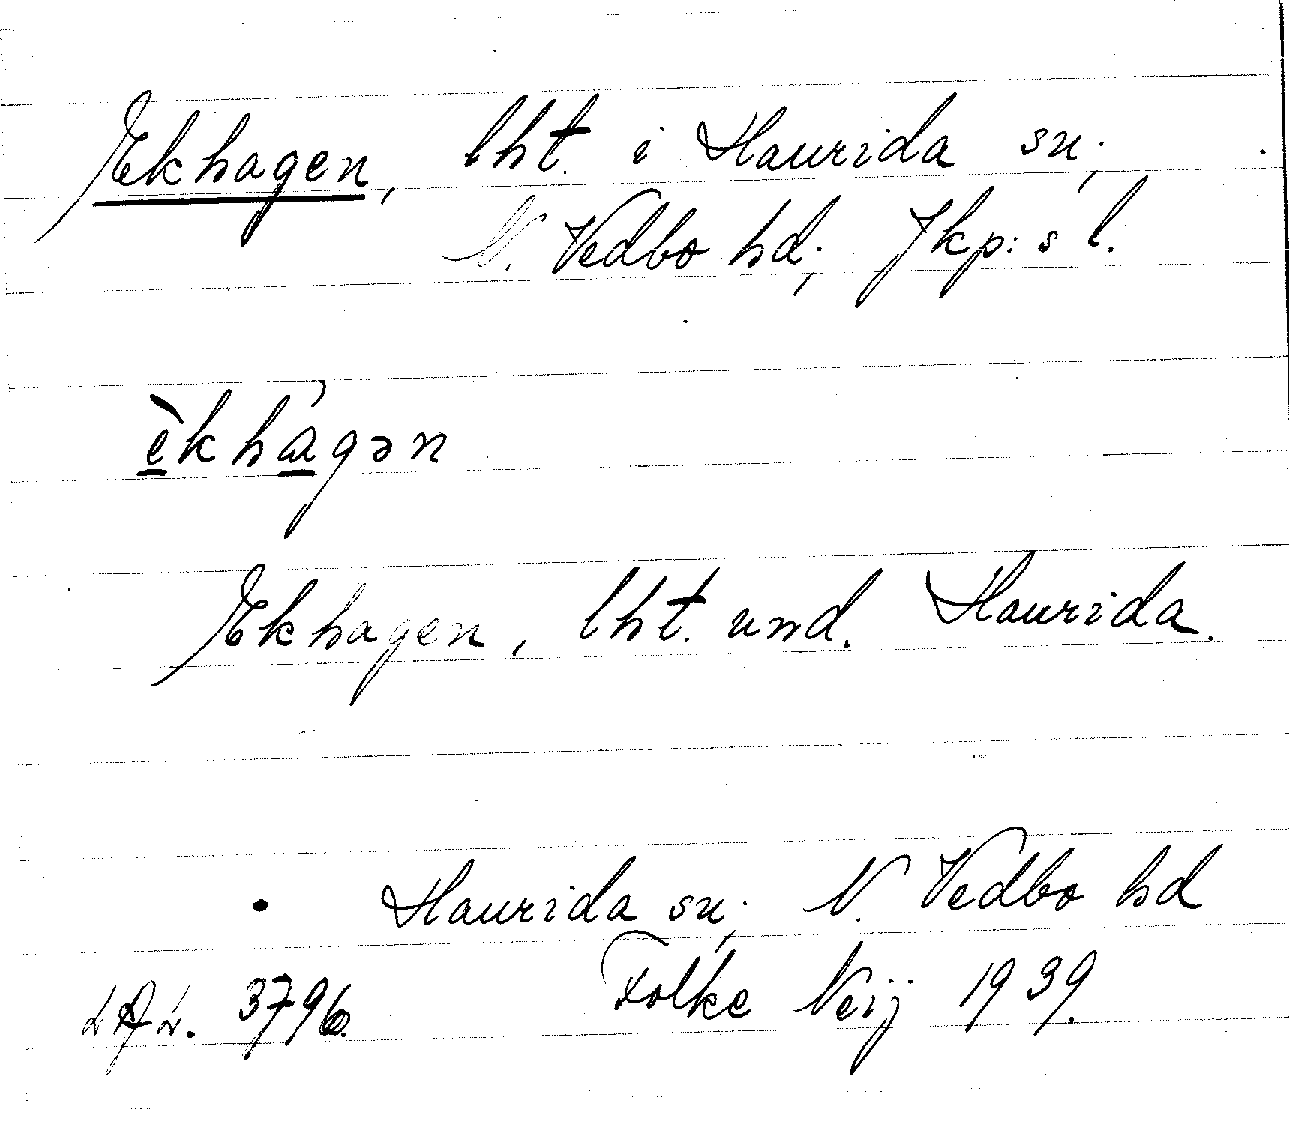 Ekhagen, lht. i Haurida sn;
N. Vedbo hd; Jkp:s l.
èkhágən
Ekhagen, lht. und. Haurida.
Haurida sn; N. Vedbo hd
Folke Neij 1939.
3796.